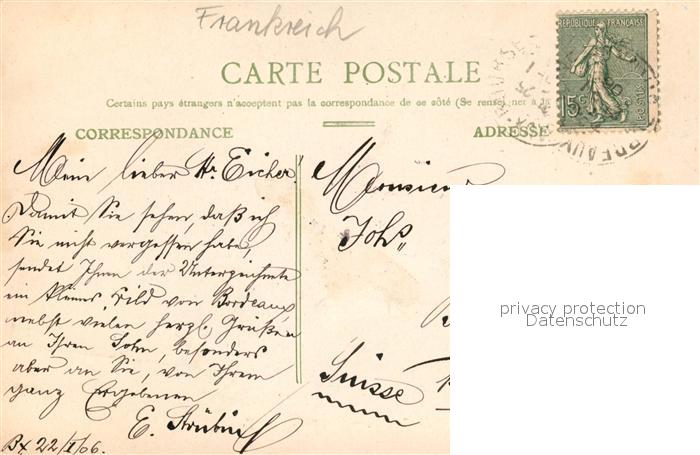 Frankreich
REPUBLIQUE FRANÇAISE
15c
POSTES
CARTE POSTALE
Certains pays étrangers n'acceptent pas la correspondance de ce côté (Se renseigner à la
CORRESPONDANCE
ADRESSE
Mein lieber Hr. Eicher!
Damit Sie sehen, daß ich
Sie nicht vergessen habe,
sendet Ihnen der Unterzeichnete
ein kleines Bild von Bordeaux
nebst vielen herzl. Grüßen
an Ihren Sohn, besonders
aber an Sie, von Ihrem
ganz Ergebenen
E. Strübin
Bx 22/I/06.
Monsieur
Johs
Suisse
privacy protection
Datenschutz